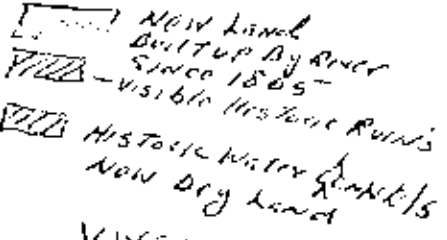 New Land
Built up By River
Since 1805
- Visible Historic Ruins
Historic Water
Now Dry Land